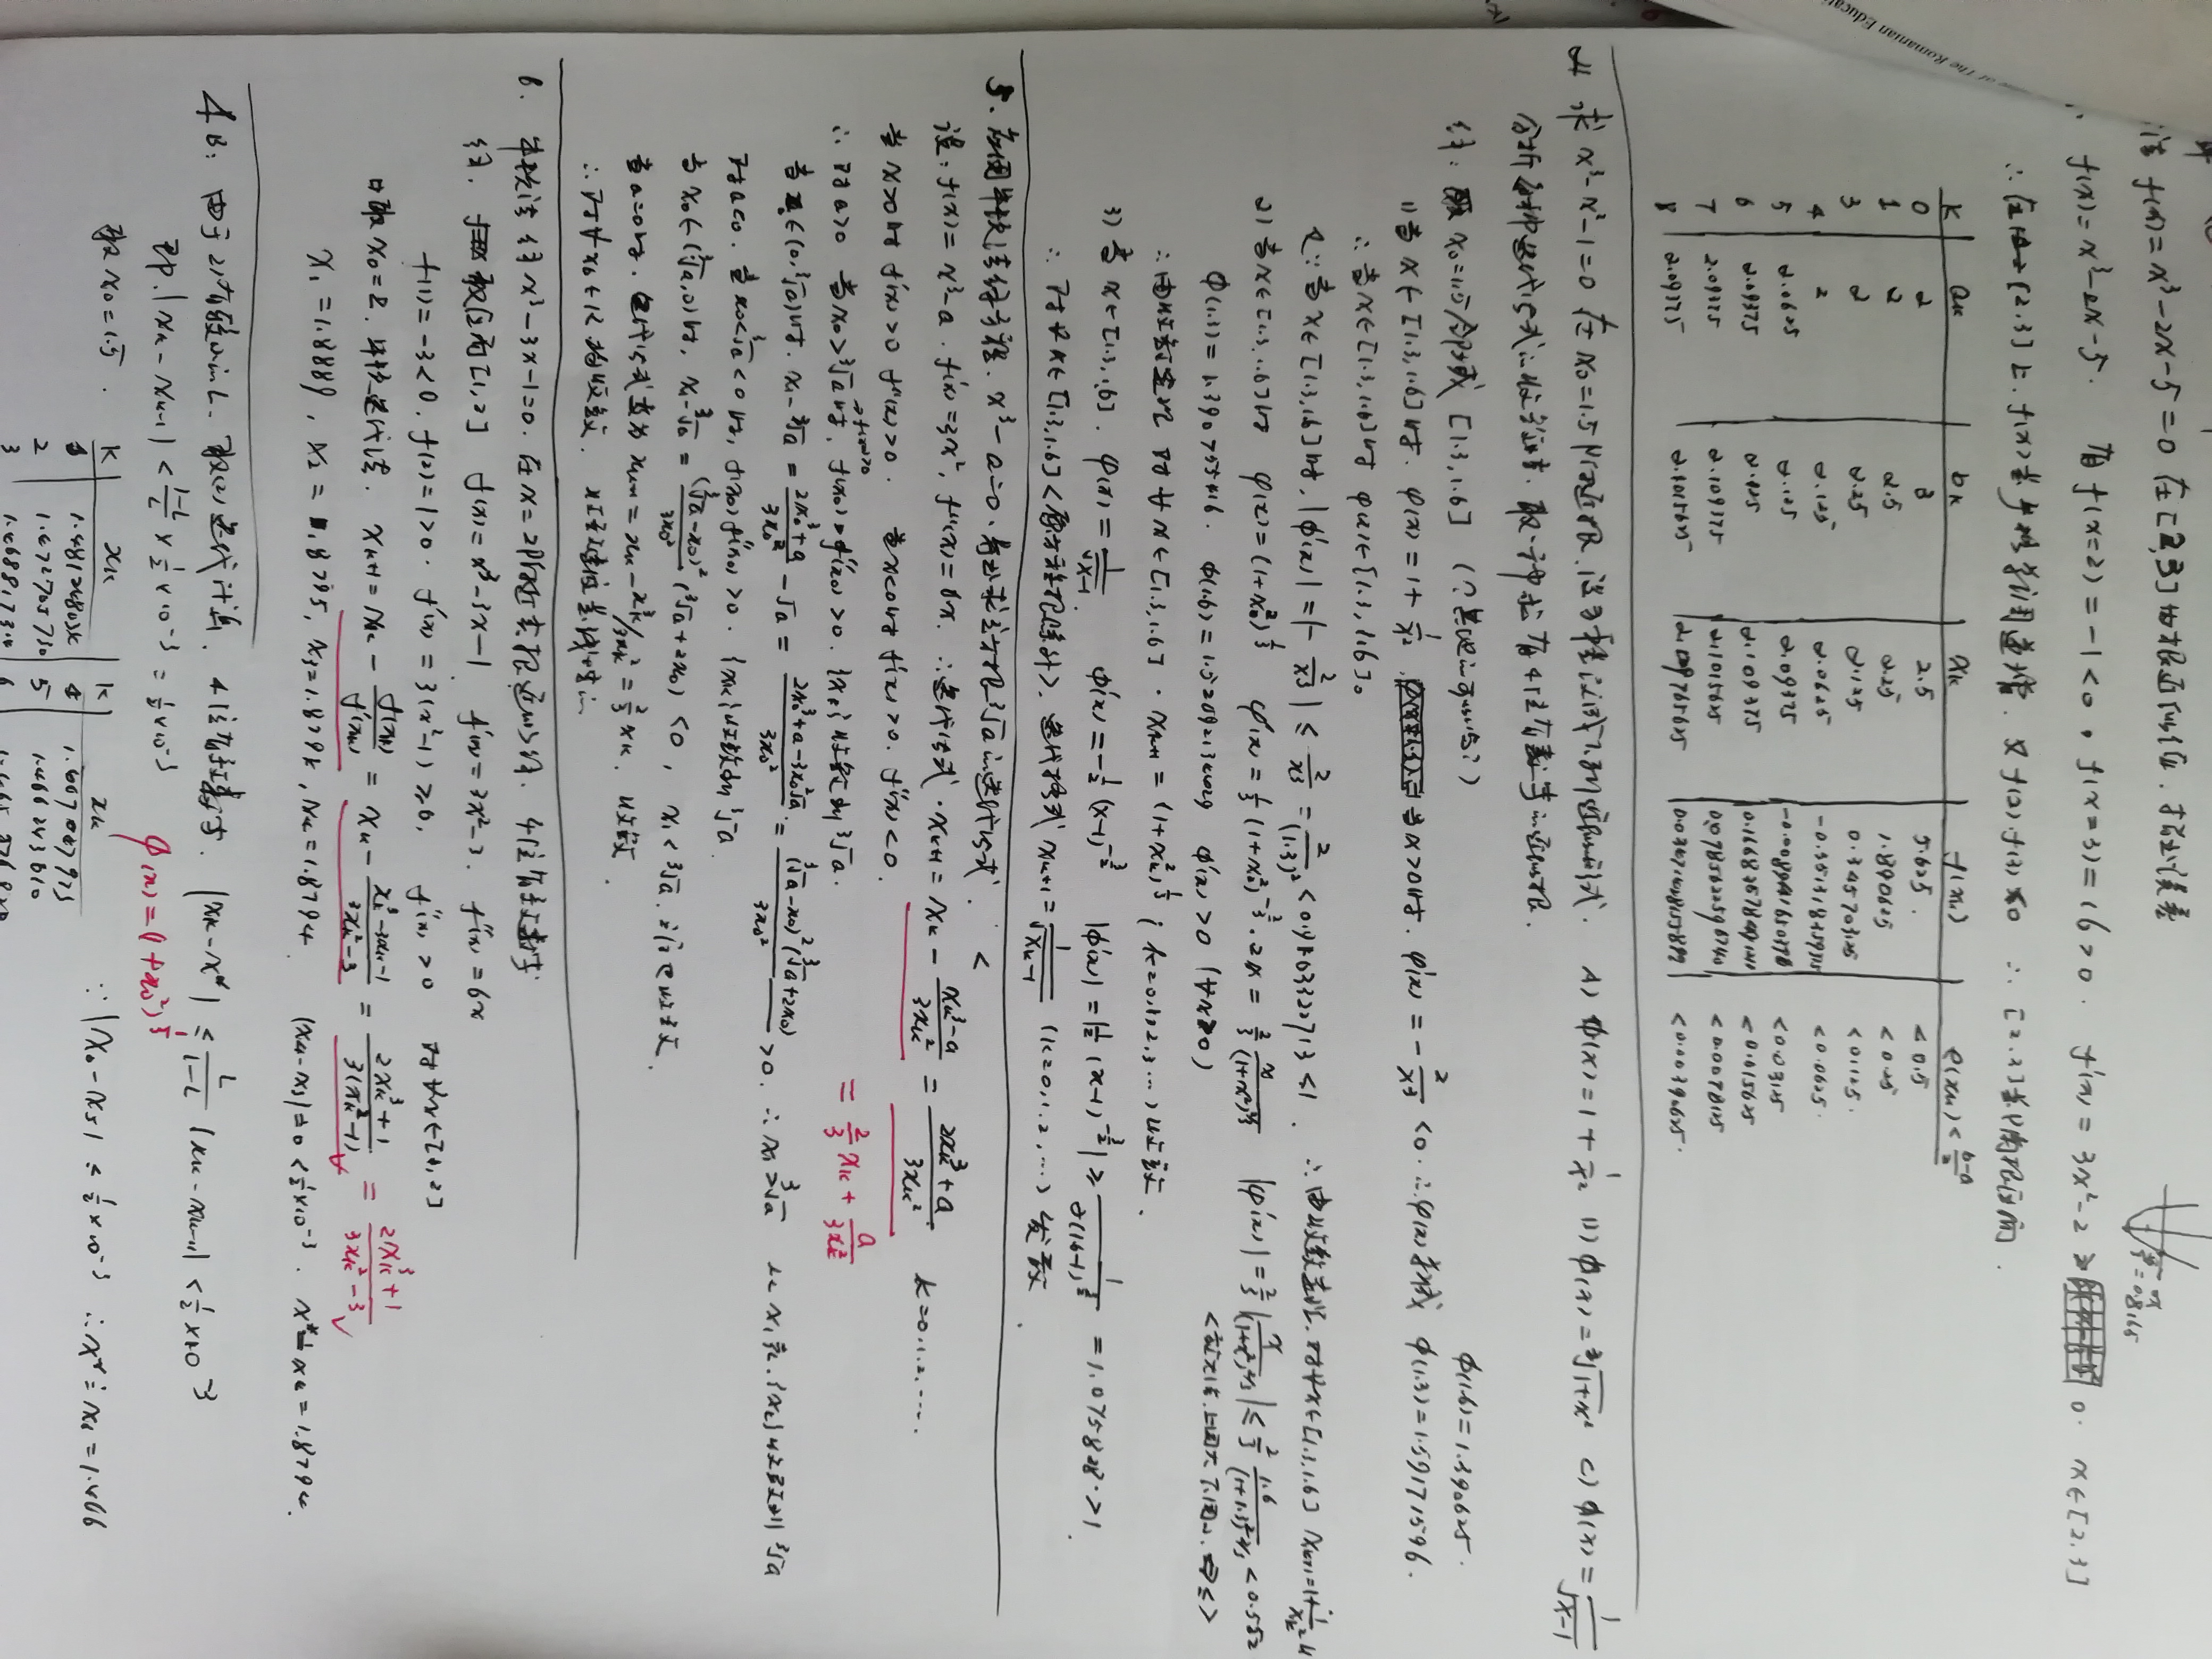 f(x)=x³-2x-5=0 在[2,3]的根近似值. 指出误差
f(x)=x³-2x-5. 有f(x=2)=-1<0, f(x=3)=16>0. f'(x)=3x²-2≥ 0. x∈[2.3]
∴在[2.3]上. f(x)是 单调递增. 又f(2).f(3)<0 ∴[2.3]是 有根区间.
K aₖ bₖ xₖ f(xₖ) e(xₖ)<(b-a)/2
0 2 3 2.5 5.625. <0.5
1 2 2.5 2.25 1.890625 <0.25
3 2 2.25 2.125 0.345703125 <0.125.
4 2 2.125 2.0625 <0.0625.
5 2.0625 2.125 2.09375 <0.03125
6 2.09375 2.125 2.109375 <0.015625
7 2.09375 2.109375 2.1015625 <0.0078125
8 2.09375 2.1015625 <0.00390625.
of the Romanian Educat
4 求 x³-x²-1=0 在x₀=1.5附近根. 设方程改成下列 形式. A) φ(x)=1+1/x² B) φ(x)=³√(1+x²) C) φ(x)=1/√(x-1)
分析每种迭代公式的收敛性. 取一种求有4位有效数字的近似根.
解: 取x₀=1.5邻域 [1.3,1.6] (?其他 ?) φ(1.6)=1.390625.
1)当x∈[1.3,1.6]时. φ(x)=1+1/x² 当x>0时. φ'(x)=-2/x³<0. ∴φ(x) φ(1.3)=1.59171596.
∴当x∈[1.3,1.6]时 φ(x)∈[1.3,1.6]。
又∵当x∈[1.3,1.6]时, |φ'(x)|=|-2/x³|≤2/x³=2/(1.3)³<0.91033 <1. ∴由收敛定理. 对∀x∈[1.3,1.6] xₖ₊₁=1+1/xₖ² 收
2)当x∈[1.3,1.6]时 φ(x)=(1+x₀²)^(1/3) φ'(x)=1/3(1+x₀²)^(-2/3).2x=2/3 x/(1+x²)^(2/3) |φ'(x)|=2/3|x/(1+x²)^(2/3)|≤2/3 1.6/(1+1.3²)^(2/3)<0.552
φ(1.3)=1.390755416. φ'(x)>0 (∀x>0)
∴由收敛定理 对∀x∈[1.3,1.6]. xₖ₊₁=(1+xₖ²)^(1/3) (k=0.1.2.3…)收敛.
3)当x∈[1.3,1.6]. φ(x)=1/√(x-1). φ'(x)=-1/2(x-1)^(-3/2) |φ'(x)|=|1/2(x-1)^(-3/2)|≥1/(2(1.6-1)^(3/2))=1.075828>1.
∴对∀x∈[1.3,1.6]<原方程根除外>. 迭代格式xₖ₊₁=1/√(xₖ-1) (k=0.1.2,…)发散.
5. 应用牛顿法解方程. x³-a=0. 导出求立方根³√a的迭代公式. <
设:f(x)=x³-a. f'(x)=3x², f''(x)=6x. ∴迭代公式.xₖ₊₁=xₖ-(xₖ³-a)/3xₖ²=(2xₖ³+a)/3xₖ² k=0.1.2.….
当x>0时 f'(x)>0 f''(x)>0. 当x<0时 f'(x)>0. f''(x)<0.
=2/3 xₖ+a/3xₖ²
→f(x₀)>0
∴对a>0 当x₀>³√a时, f(x₀)·f''(x₀)>0. {xₖ}收敛到³√a.
当x₀∈(0,³√a)时. x₁-³√a=(2x₀³+a)/3x₀²-√a=(2x₀³+a-3x₀²√a)/3x₀²=(³√a-x₀)²(³√a+2x₀)/3x₀²>0. ∴x₁>³√a 从x₁起.{xₖ}收敛到³√a
对a<0. 当x₀<³√a<0时, f(x₀)f''(x₀)>0. {xₖ}收敛到³√a.
当x₀∈(³√a,0)时, x₁-³√a=(³√a-x₀)²/3x₀²(³√a+2x₀)<0, x₁<³√a. 收敛.
当a=0时. 迭代公式变为xₖ₊₁=xₖ-xₖ³/3xₖ²=2/3xₖ. 收敛
∴对∀x₀∈R 均收敛. 收敛速度是线性的
6. 牛顿法解x³-3x-1=0. 在x=2附近 根近似解. 4位有效数字
解. 取区间[1,2] f(x)=x³-3x-1 f'(x)=3x²-3. f''(x)=6x
f(1)=-3<0. f(2)=1>0. f'(x)=3(x²-1)≥0, f''(x)>0 对∀x∈[1,2]
取x₀=2. 牛顿迭代法. xₖ₊₁=xₖ-f(xₖ)/f'(xₖ)=xₖ-(xₖ³-3xₖ-1)/(3xₖ²-3)=(2xₖ³+1)/3(xₖ²-1)=(2xₖ³+1)/(3xₖ²-3)
x₁=1.8889, x₂=1.8795, x₃=1.8794, x₄=1.8794. |x₄-x₃|=0<½×10⁻³. x*≐x₄=1.8794.
4B: 由于2)有较小的L. 取(2)迭代计算. 4位有效数字. |xₖ-x*|≤L/(1-L)|xₖ-xₖ₋₁|<½×10⁻³
即.|xₖ-xₖ₋₁|<(1-L)/L×½×10⁻³=½×10⁻³ φ(x)=(1+x₀²)^(1/3)
取x₀=1.5. K xₖ K xₖ ∵|x₆-x₅|≤½×10⁻³ ∴x*≐x₆=1.466
1 4
2 1.472705730 5 1.466243010
3 6